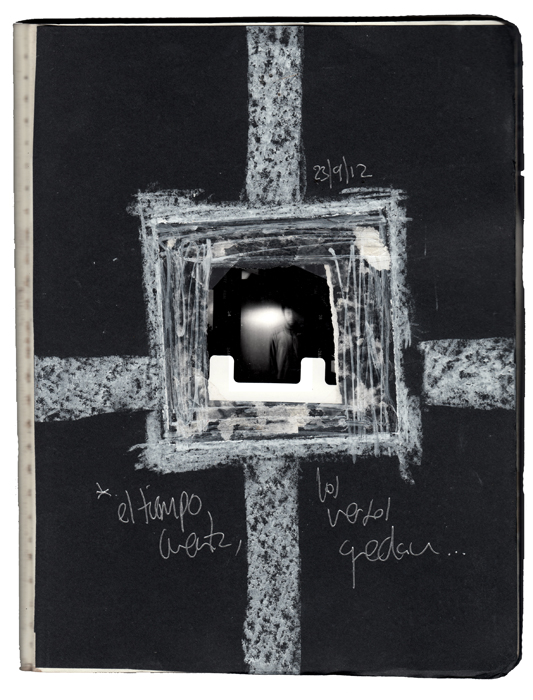 23/9/12
* el tiempo
cuenta,
los
versos
quedan...